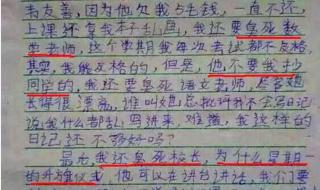 韦友善,因为他欠我5毛钱,一直不还,
上课还拿我本子乱画,我还要臭死数
学老师,这个学期我每次考试都不及格,
其实,我能及格的,但是,他不要我抄
同学的,我还要臭死语文老师,尽管她
长得很漂亮,谁叫她总批评我不会写日记
说我什么都乱写进来,难道,我这样的
日记还不够好吗?
最后我还臭死校长,为什么星期一
的升旗仪式,他可以在讲台讲话,我们要